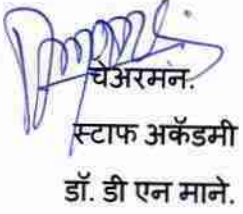 चेअरमन.
स्टाफ अकॅडमी
डॉ. डी एन माने.